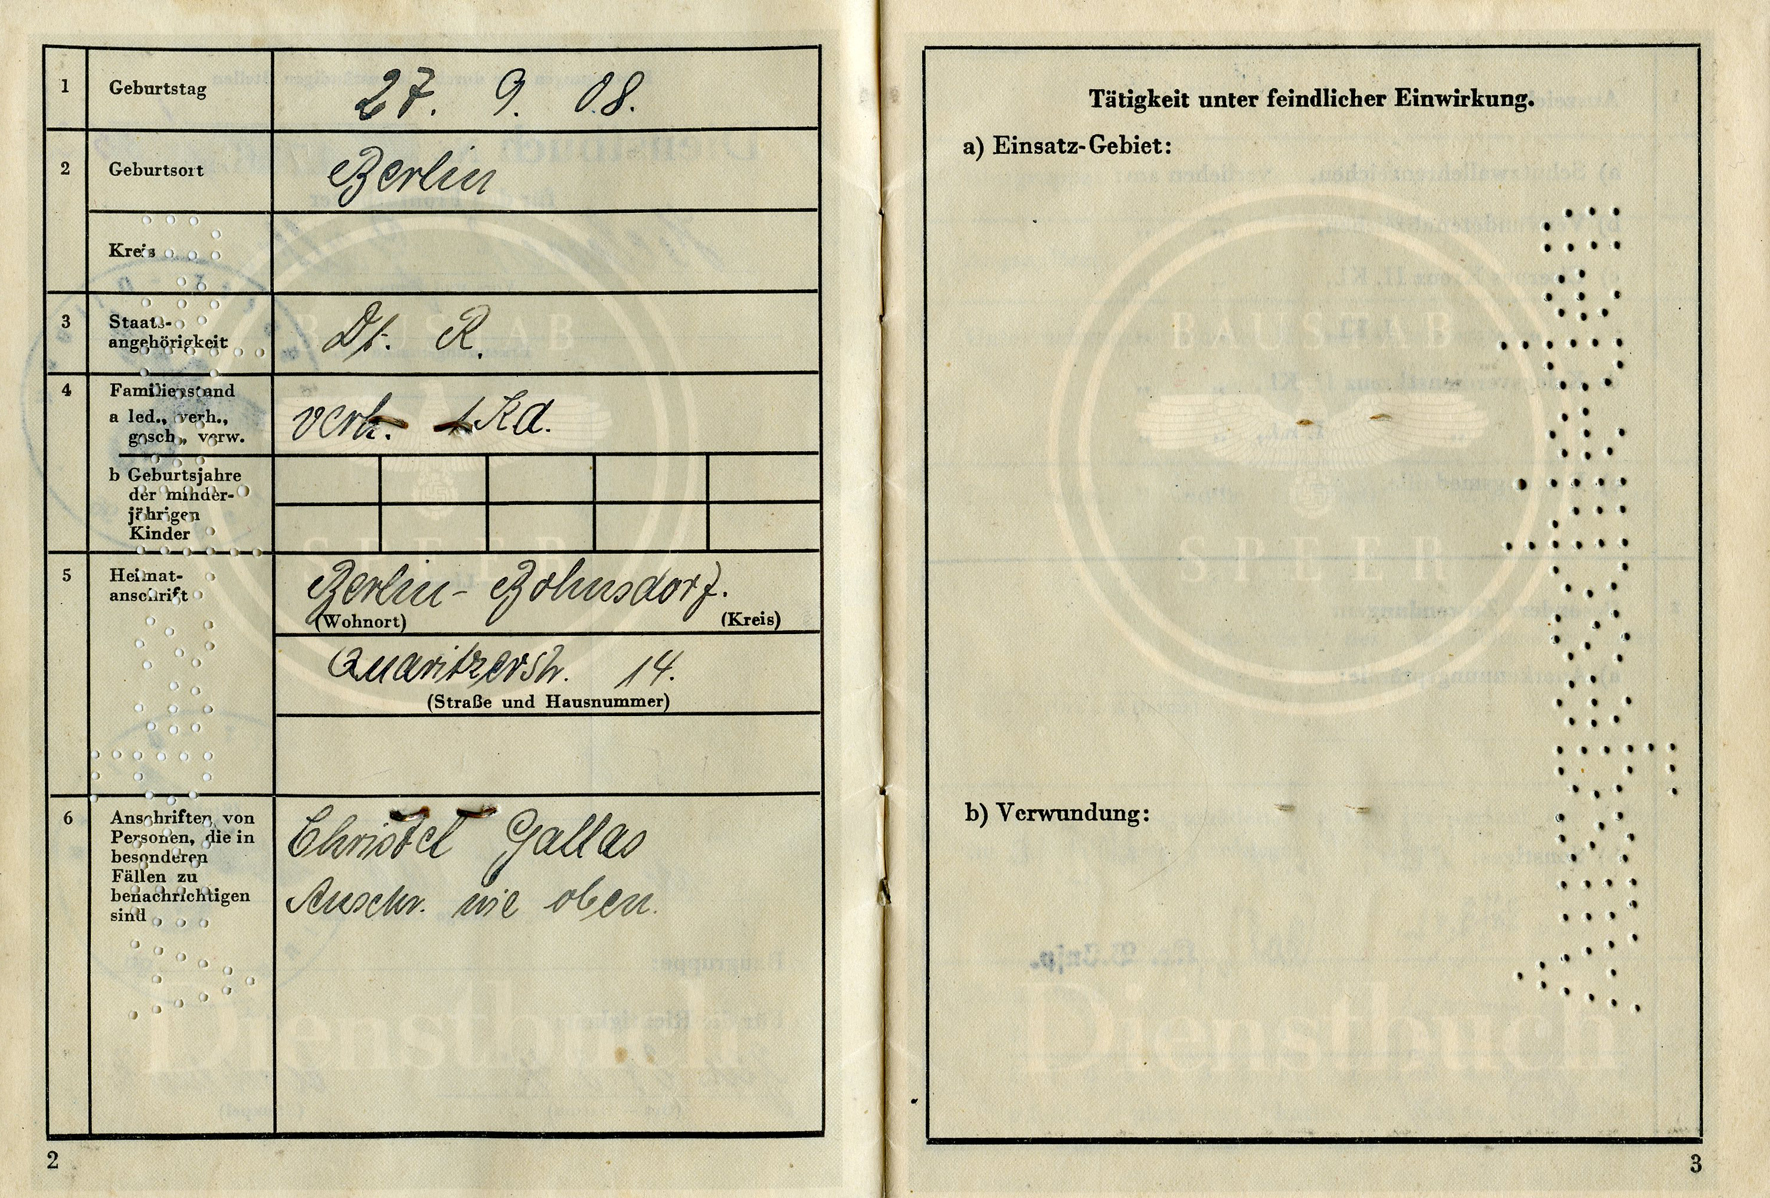 1 Geburtstag 27. 9. 08.
2 Geburtsort Berlin
Kreis
3 Staats-
angehörigkeit Dt. R.
4 Familienstand
a led., verh.,
gesch., verw. verh. 1 Kd.
b Geburtsjahre
der minder-
jährigen
Kinder
5 Heimat-
anschrift Berlin - Bohnsdorf.
(Wohnort) (Kreis)
Quaritzerstr. 14.
(Straße und Hausnummer)
6 Anschriften von
Personen, die in
besonderen
Fällen zu
benachrichtigen
sind
Christel Gallas
Anschr. wie oben.
BAUSTAB
SPEER
Dienstbuch
2
Tätigkeit unter feindlicher Einwirkung.
a) Einsatz-Gebiet:
BAUSTAB
SPEER
b) Verwundung:
Dienstbuch
3